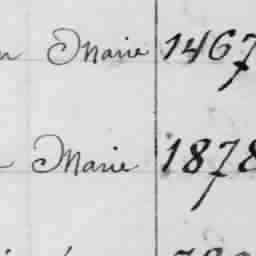 Marie 1467
Marie 1878